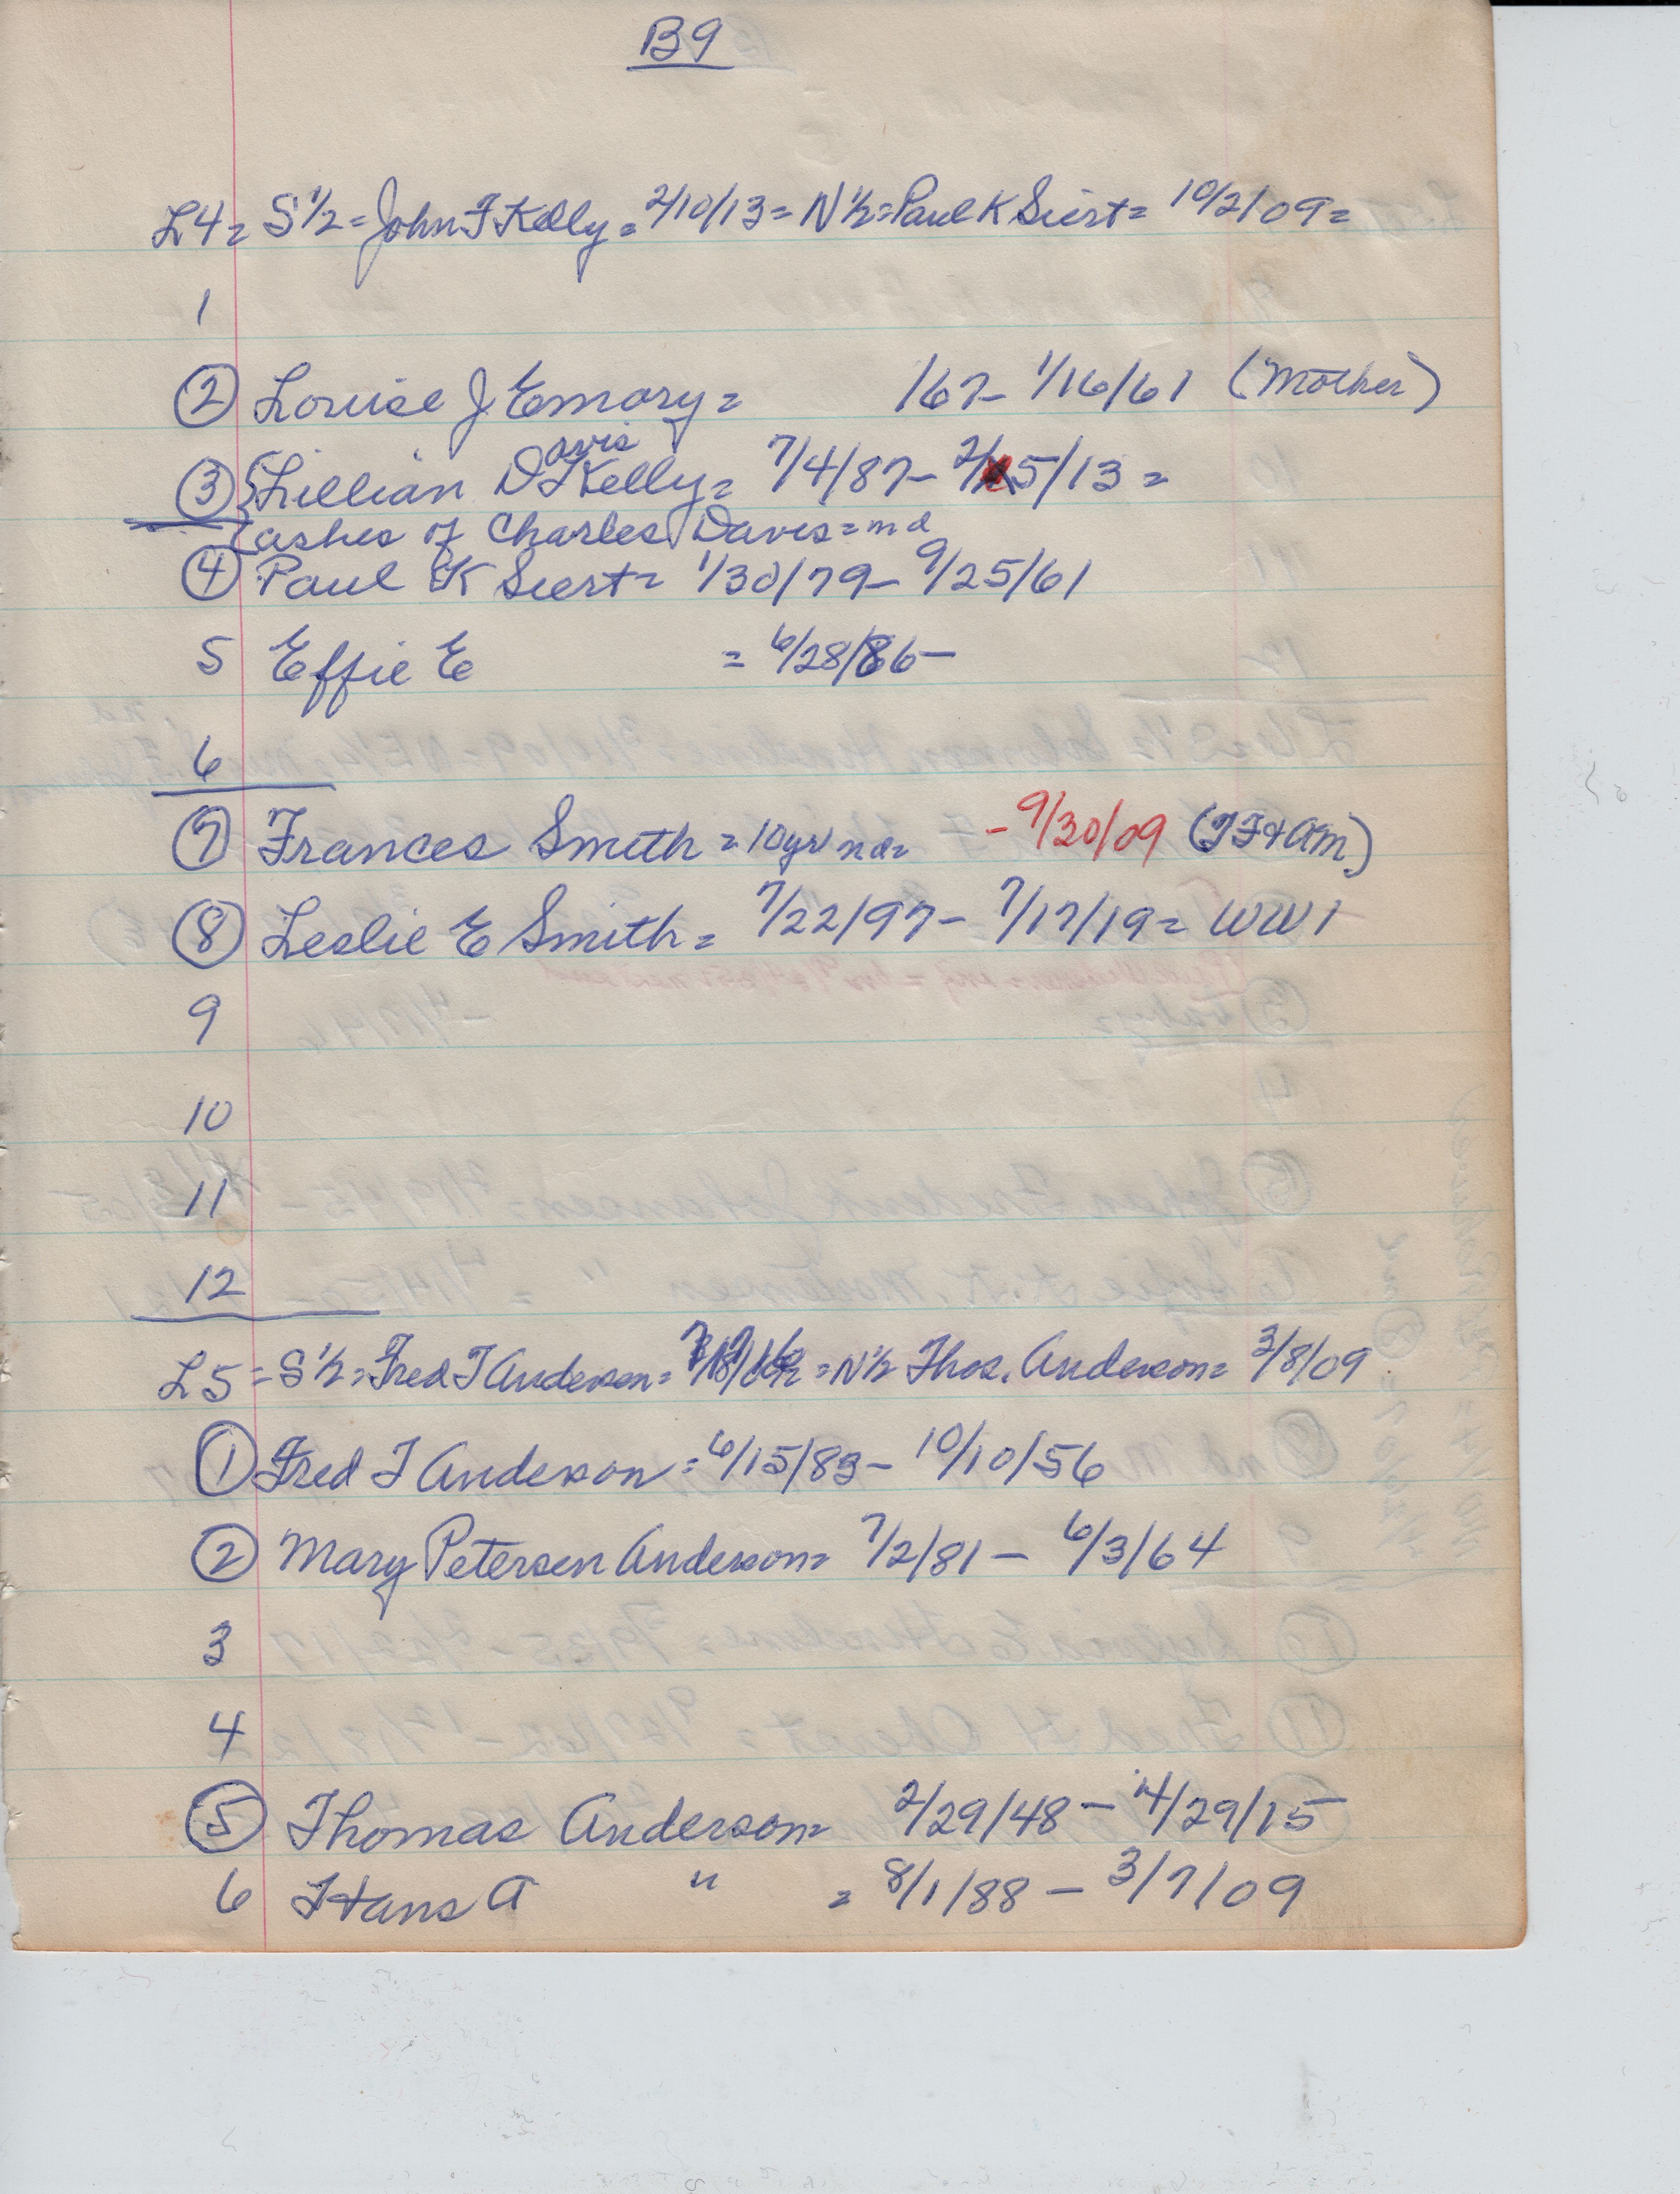 B9
L4= S½=John F Kelly= 2/10/13= N½=Paul K Siert= 10/2/09=
1
② Louise J Emory= /67- 1/16/61 (Mother)
③ Lillian Davis Kelly= 7/4/87- 2/5/13=
ashes of Charles Davis=nd
④ Paul K Siert= 1/30/79- 9/25/61
5 Effie E = 6/28/86-
6
⑦ Frances Smith=10yr nd= -9/30/09
⑧ Leslie E Smith= 7/22/97- 7/17/19= WW1
9
10
11
12
L5=S½=Fred T Anderson= =N½ Thos. Anderson= 3/8/09
① Fred T Anderson= 6/15/83- 10/10/56
② Mary Petersen Anderson= 7/2/81- 6/3/64
3
4
⑤ Thomas Anderson= 2/29/48- 4/29/15
6 Hans A " = 8/1/88- 3/7/09